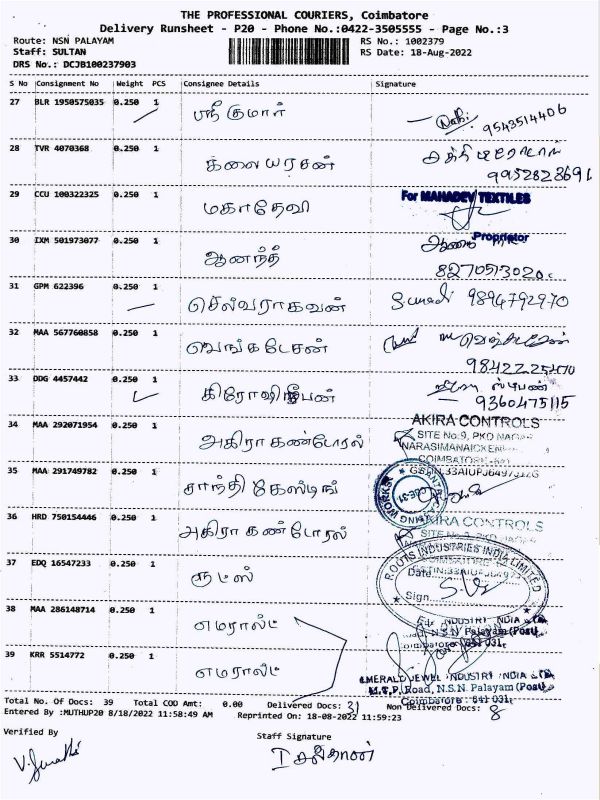 THE PROFESSIONAL COURIERS, Coimbatore
Delivery Runsheet - P20 - Phone No.:0422-3505555 - Page No.:3
Route: NSN PALAYAM RS No.: 1002379
Staff: SULTAN RS Date: 18-Aug-2022
DRS No.: DCJB100237903
S No Consignment No Weight PCS Consignee Details Signature
27 BLR 1950575035 0.250 1 ஸ்ரீகுமார் 9543514406
28 TVR 4070368 0.250 1 9952823691
29 CCU 100322325 0.250 1 மகாதேவி For MAHADEV TEXTILES
Proprietor
30 IXM 501973077 0.250 1 ஆனந்தீ
8270513020
31 GPM 622396 0.250 1 செல்வராகவன் 9894792970
32 MAA 567760858 0.250 1 வெங்கடேசன்
9842225470
33 DDG 4457442 0.250 1 ஸ்டீபன்
9360475115
34 MAA 292071954 0.250 1 அகிரா கண்ட்ரோல் AKIRA CONTROLS
SITE No.9, PKD NAGAR
35 MAA 291749782 0.250 1 சாந்தி கேஸ்டிங்
36 HRD 750154446 0.250 1 அகிரா கண்ட்ரோல் AKIRA CONTROLS
37 EDQ 16547233 0.250 1 ரூட்ஸ் ROOTS INDUSTRIES INDIA LIMITED
Date
Sign
38 MAA 286148714 0.250 1 எமரால்ட்
N.S.N Palayam (Post)
39 KRR 5514772 0.250 1 எமரால்ட்
EMERALD JEWEL INDUSTRY INDIA
M.T.P. Road, N.S.N. Palayam (Post)
Coimbatore - 641 031
Total No. Of Docs: 39 Total COD Amt: 0.00 Delivered Docs: 31 Non Delivered Docs: 8
Entered By :MUTHUP20 8/18/2022 11:58:49 AM Reprinted On : 18-08-2022 11:59:23
Verified By Staff Signature